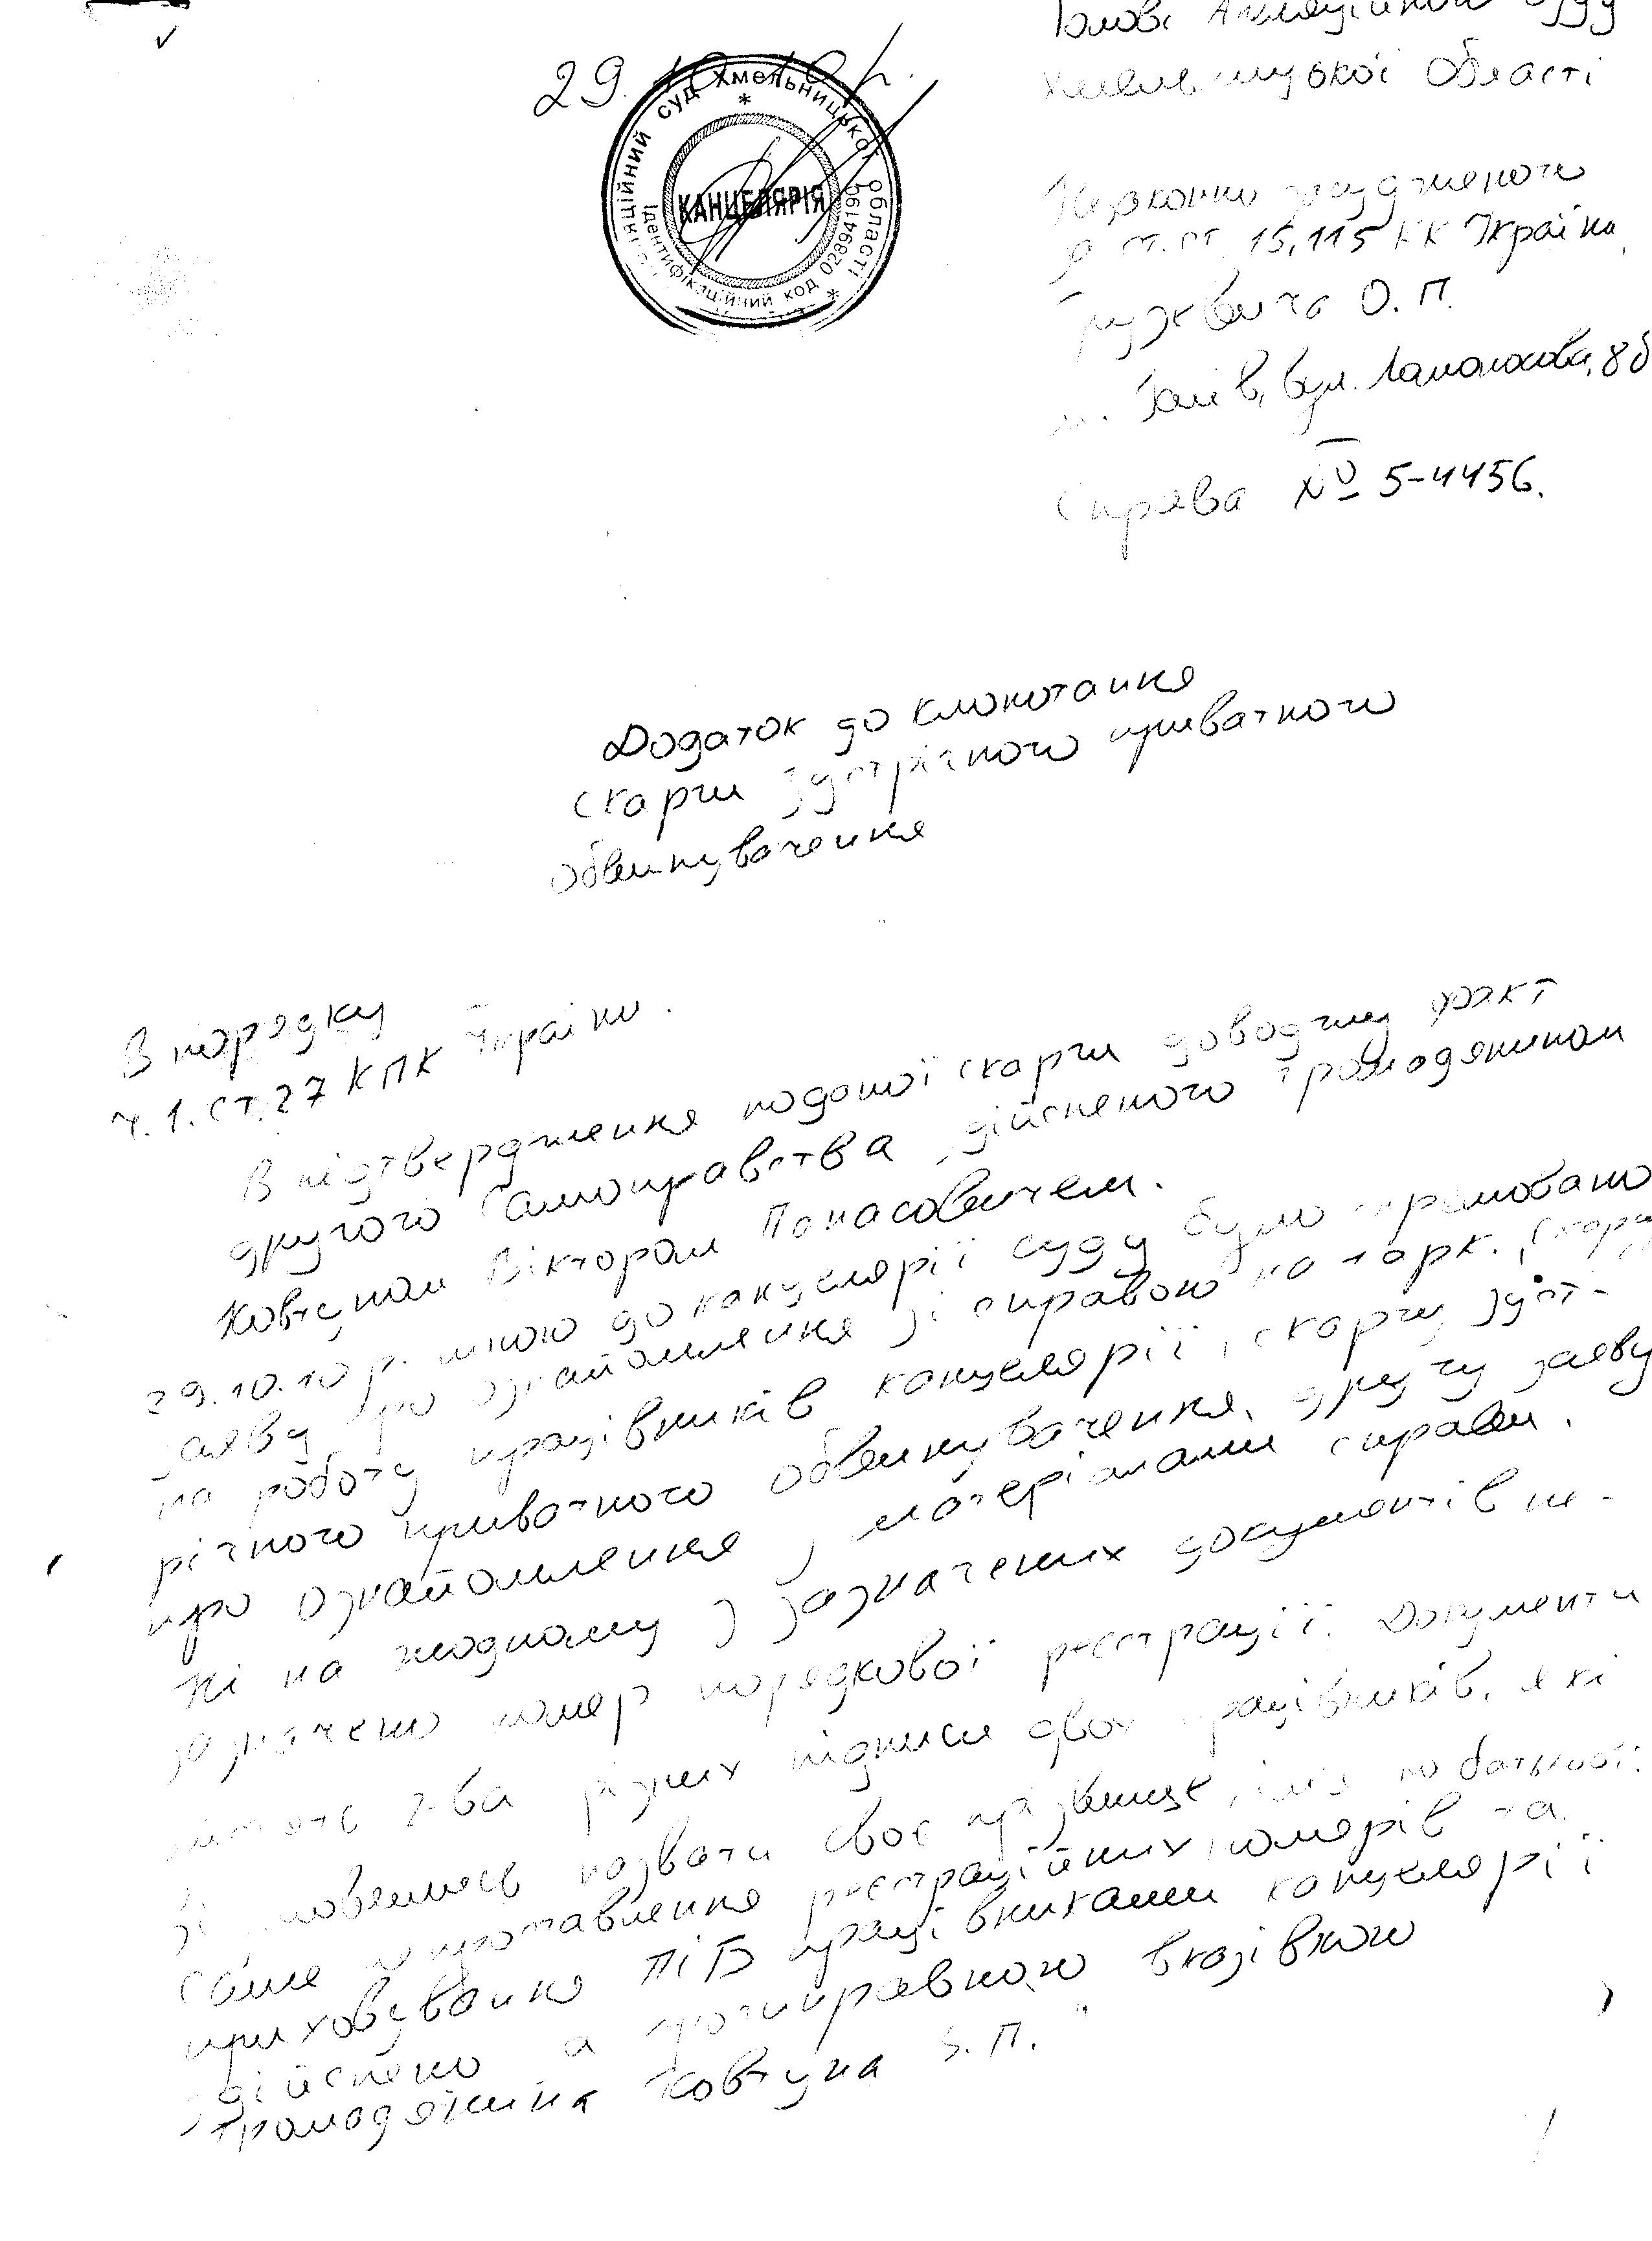 29.10.10 р.
Апеляційний суд Хмельницької області
КАНЦЕЛЯРІЯ
Ідентифікаційний код 02894199
Голові Апеляційного суду
Хмельницької області
засудженого
ст.ст. 15, 115 КК Україна
О. П.
вул. 8б
Справа № 5-4456.
Додаток до клопотання
скарги зустрічного приватного
обвинувачення
В порядку
ч. 1. ст. 27 КПК України.
В підтвердження поданої скарги доводжу факт
другого самоправства здійсненого громадянином
Ковтуном Віктором Панасовичем.
29.10.10 р. мною до канцелярії суду було
заяву про ознайомлення зі справою на арк., скаргу
на роботу працівників канцелярії, скаргу зуст-
річного приватного обвинувачення, другу заяву
про ознайомлення з матеріалами справи.
Ні на жодному з зазначених документів не
зазначено номер порядкової реєстрації. Документи
містять 2-ва різних підписи двох працівників, які
відмовились назвати своє прізвище, ім'я по батькові.
Саме реєстраційних номерів та
приховування ПіБ працівниками канцелярії
здійснено за протиправною вказівкою
громадянина Ковтуна В. П.